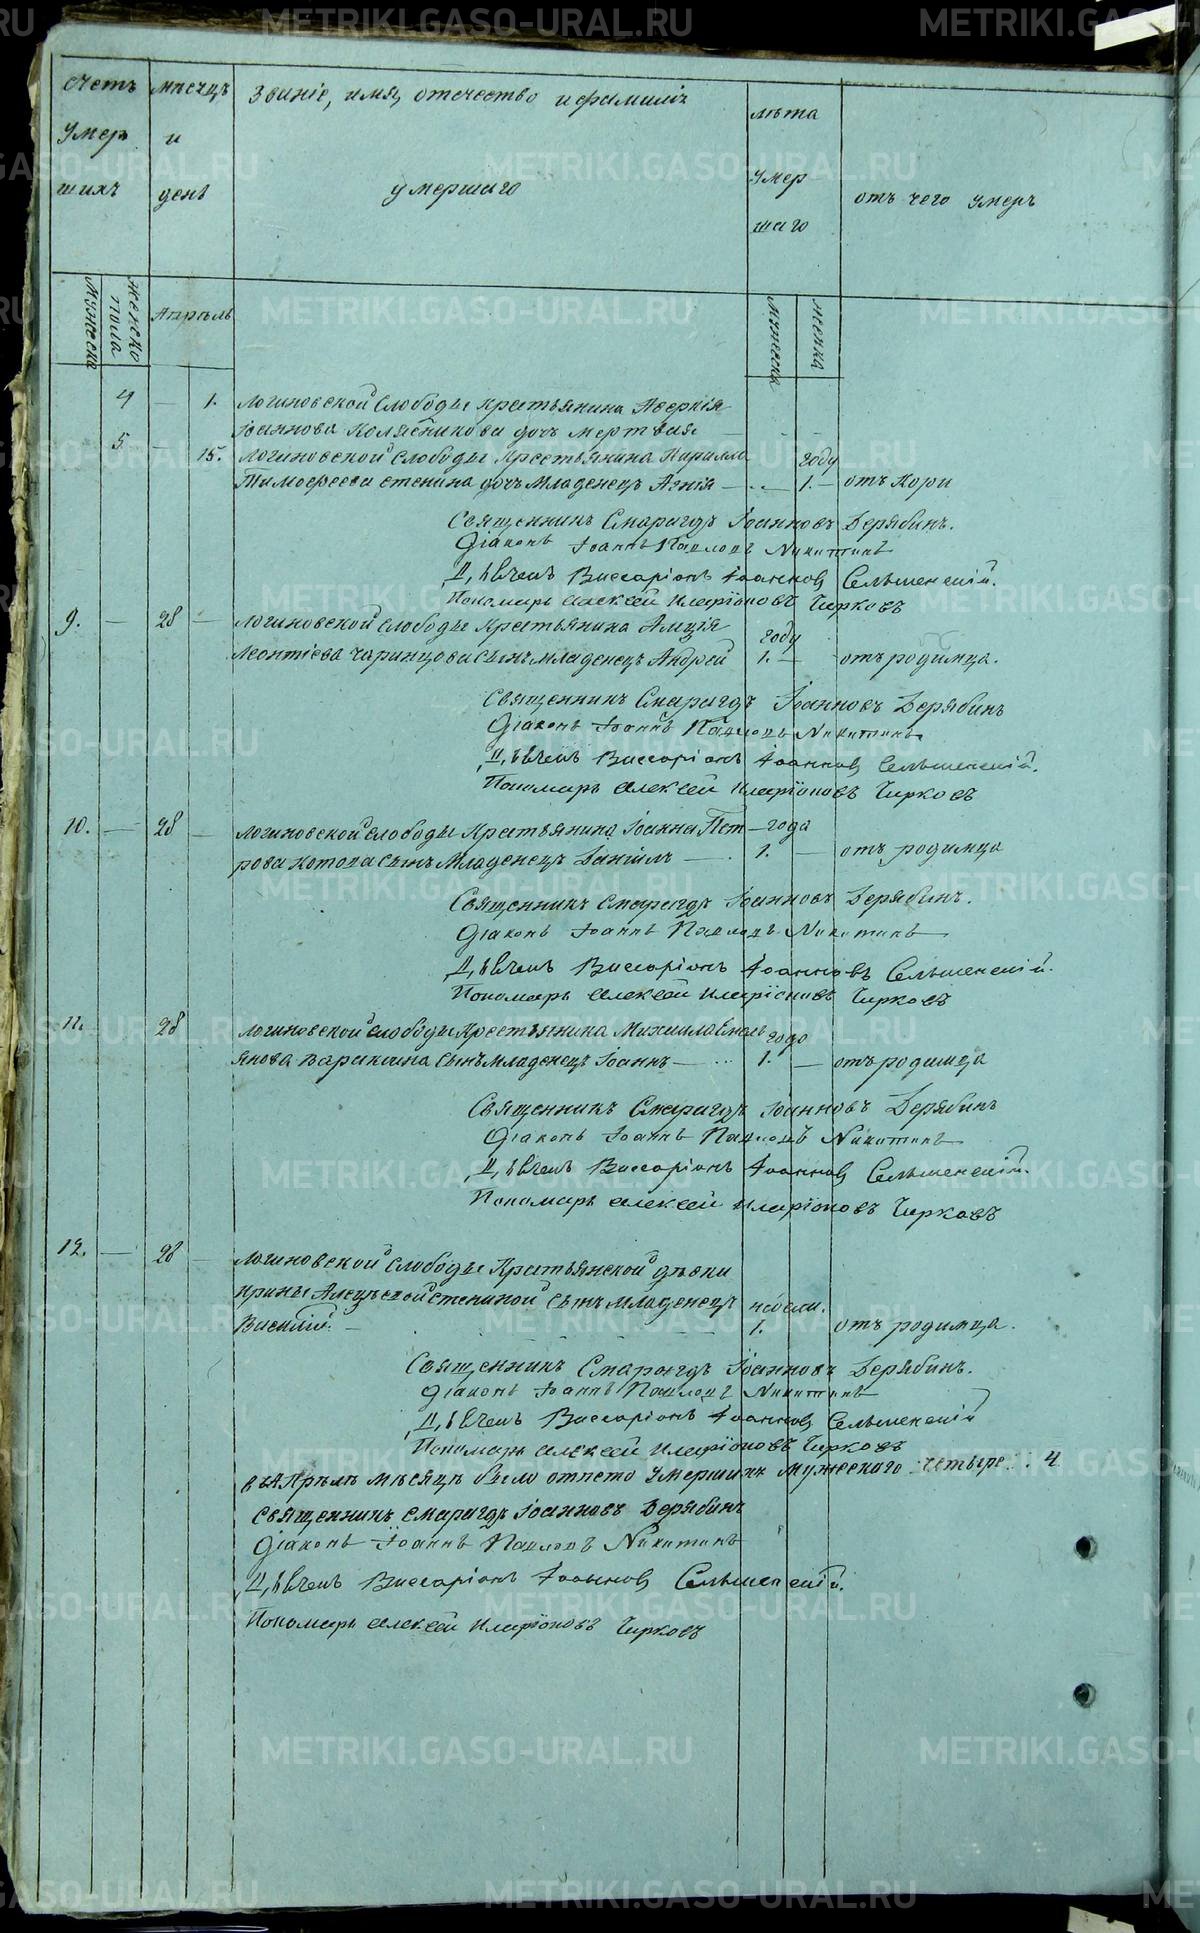 Счетъ умер шихъ
мѣсяцъ и день
Званіе, имя, отечество и фамилія
умершаго
лѣта умер шаго
отъ чего умеръ
мужеска
женско пола
Апрѣль
мужеска
женска
4 — 1. Логиновской слободы крестьянина Аверкія
Іоаннова Колясникова дочь мертвая —
5 — 15. Логиновской слободы крестьянина Кирилла
году
Тимофеева Стенина дочь младенецъ Агнія — 1. — отъ Кори
Священникъ Смарагдъ Іоанновъ Дерябинъ.
Діаконъ Іоаннъ Павловъ Никитинъ
Виссаріонъ Іоанновъ Сельменскій.
Пономарь Алексѣй Иларіоновъ Чирковъ
9. — 28 — Логиновской слободы крестьянина
году
Леонтіева сынъ младенецъ Андрей 1. — отъ родимца.
Священникъ Смарагдъ Іоанновъ Дерябинъ
Діаконъ Іоаннъ Павловъ Никитинъ
Виссаріонъ Іоанновъ Сельменскій.
Пономарь Алексѣй Иларіоновъ Чирковъ
10. — 28 — Логиновской слободы крестьянина Іоанна Пет — года
рова Котова сынъ младенецъ Даніилъ — 1. — отъ родимца
Священникъ Смарагдъ Іоанновъ Дерябинъ.
Діаконъ Іоаннъ Павловъ Никитинъ
Виссаріонъ Іоанновъ Сельменскій.
Пономарь Алексѣй Иларіоновъ Чирковъ
11. 28 Логиновской слободы крестьянина Михаила Емель
году
янова Варакина сынъ младенецъ Іоаннъ — 1. — отъ родимца
Священникъ Смарагдъ Іоанновъ Дерябинъ
Діаконъ Іоаннъ Павловъ Никитинъ
Виссаріонъ Іоанновъ Сельменскій.
Пономарь Алексѣй Иларіоновъ Чирковъ
12. — 28 — Логиновской слободы крестьянской дѣвки
Ирины Стениной сынъ младенецъ недели.
Василій. — 1. отъ родимца.
Священникъ Смарагдъ Іоанновъ Дерябинъ.
Діаконъ Іоаннъ Павловъ Никитинъ
Виссаріонъ Іоанновъ Сельменскій
Пономарь Алексѣй Иларіоновъ Чирковъ
въ Апрѣлѣ мѣсяцѣ было отпето умершихъ мужескаго четыре. 4
Священникъ Смарагдъ Іоанновъ Дерябинъ
Діаконъ Іоаннъ Павловъ Никитинъ
Виссаріонъ Іоанновъ Сельменскій.
Пономарь Алексѣй Иларіоновъ Чирковъ
METRIKI.GASO-URAL.RU